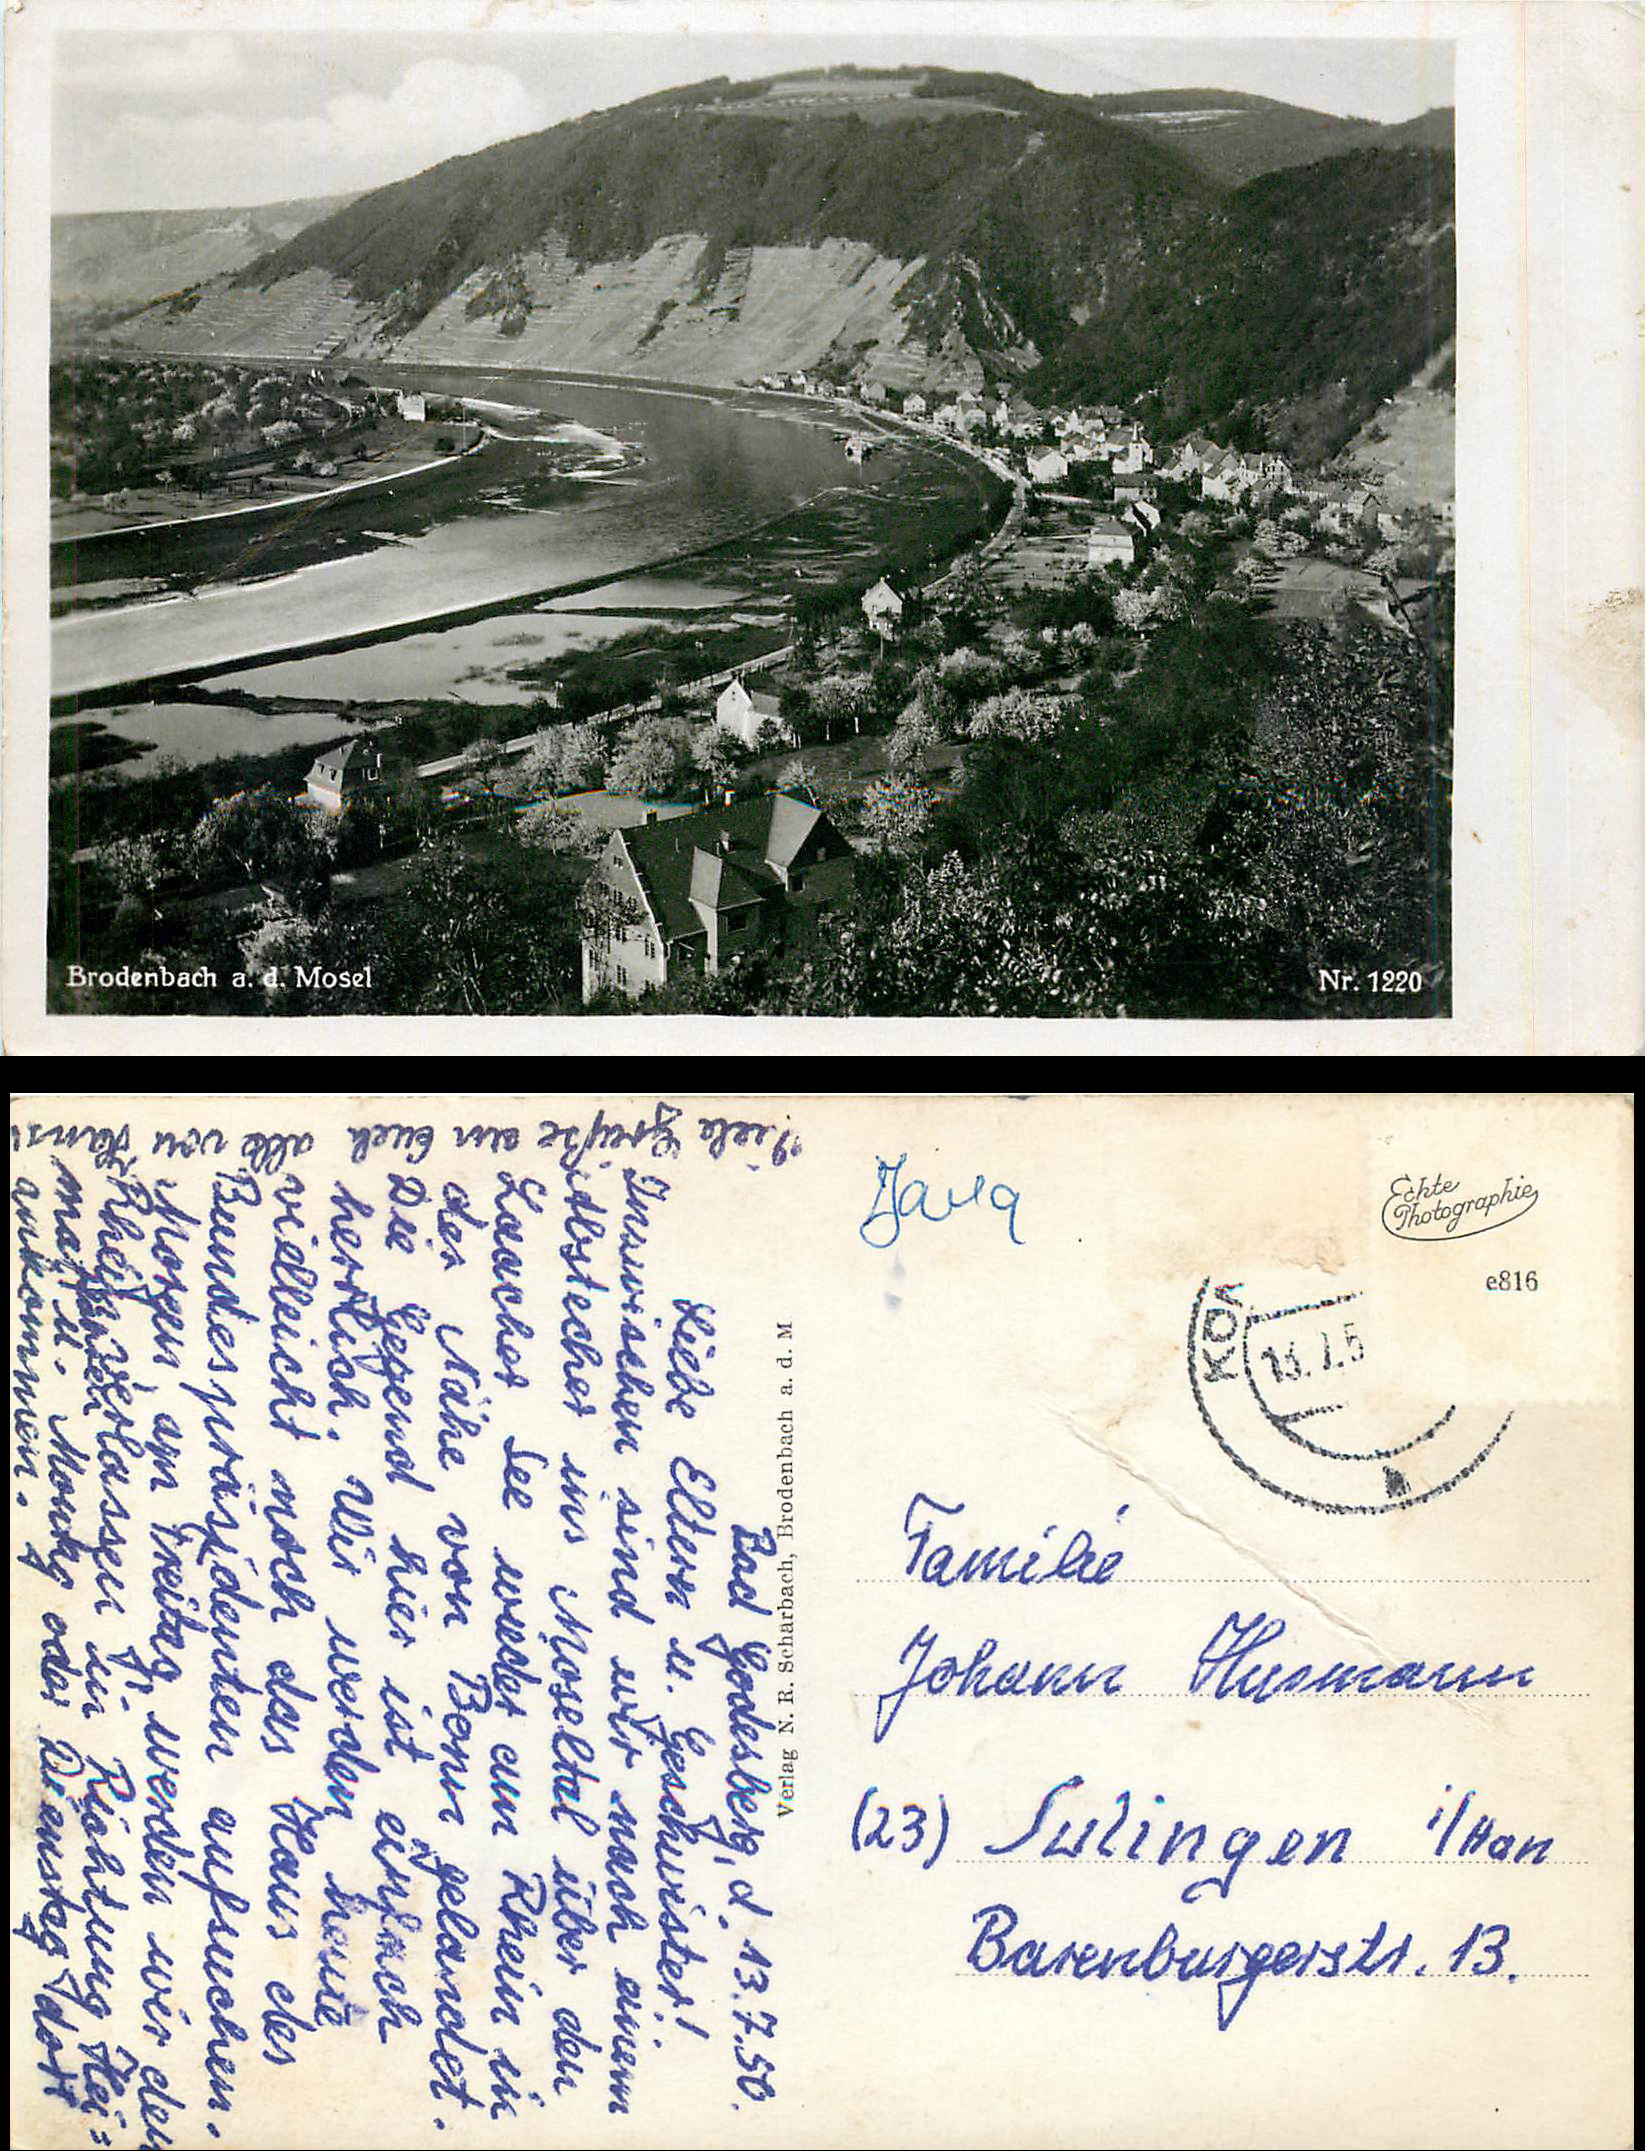 Brodenbach a. d. Mosel
Nr. 1220
Bad Godesberg, d. 13.7.50.
Liebe Eltern u. Geschwister!
Inzwischen sind wir nach einem
Abstecher ins Moseltal über den
Laacher See wieder am Rhein in
der Nähe von Bonn gelandet.
Die Gegend hier ist einfach
herrlich. Wir werden heute
vielleicht noch das Haus des
Bundespräsidenten aufsuchen.
Morgen am Freitag werden wir den
Rhein verlassen in Richtung Hei=
mat u. Montag oder Dienstag dort
ankommen.
Viele Grüße an Euch alle von
Verlag N. R. Scharbach, Brodenbach a. d. M
Echte
Photographie
e816
13.7.5
Familie
Johann Husmann
(23) Sulingen i/Han
Barenburgerstr. 13.